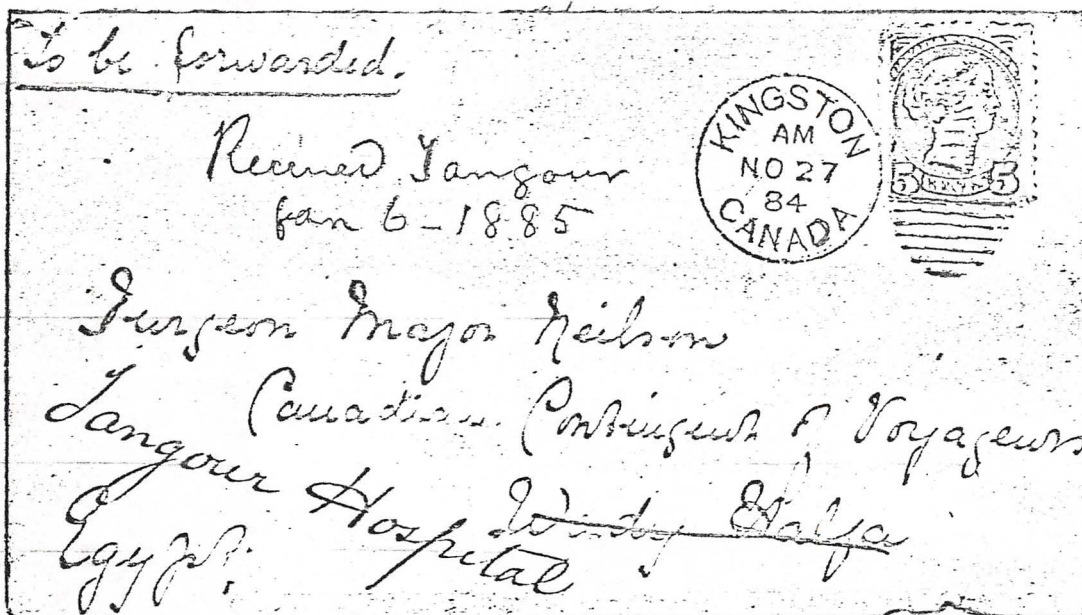 To be forwarded.
Received Tangour
Jan 6 - 1885
KINGSTON
AM
NO 27
84
CANADA
5 5
Surgeon Major Neilson
Canadian Contingent of Voyageurs
Tangour Hospital
Wady Halfa
Egypt.